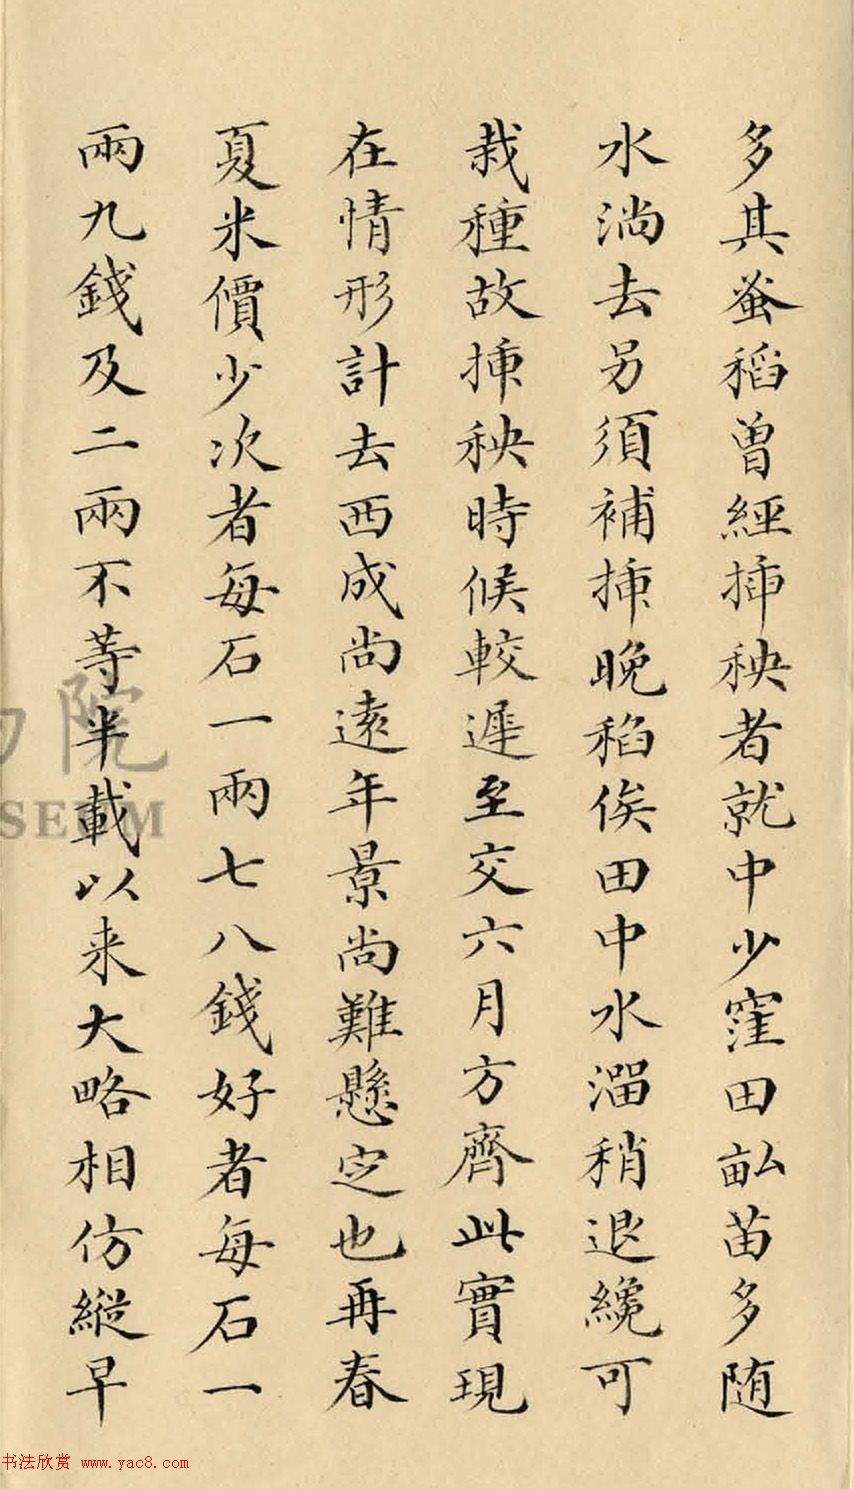 多其蚤稻曾經揷秧者就中少窪田畝苗多随
水淌去另須補揷晚稻俟田中水溜稍退纔可
栽種故揷秧時候較遲至交六月方齊此實現
在情形計去西成尚遠年景尚難懸定也再春
夏米價少次者每石一兩七八錢好者每石一
兩九錢及二兩不等半載以来大略相仿縱早
院
SEUM
书法欣赏 www.yac8.com